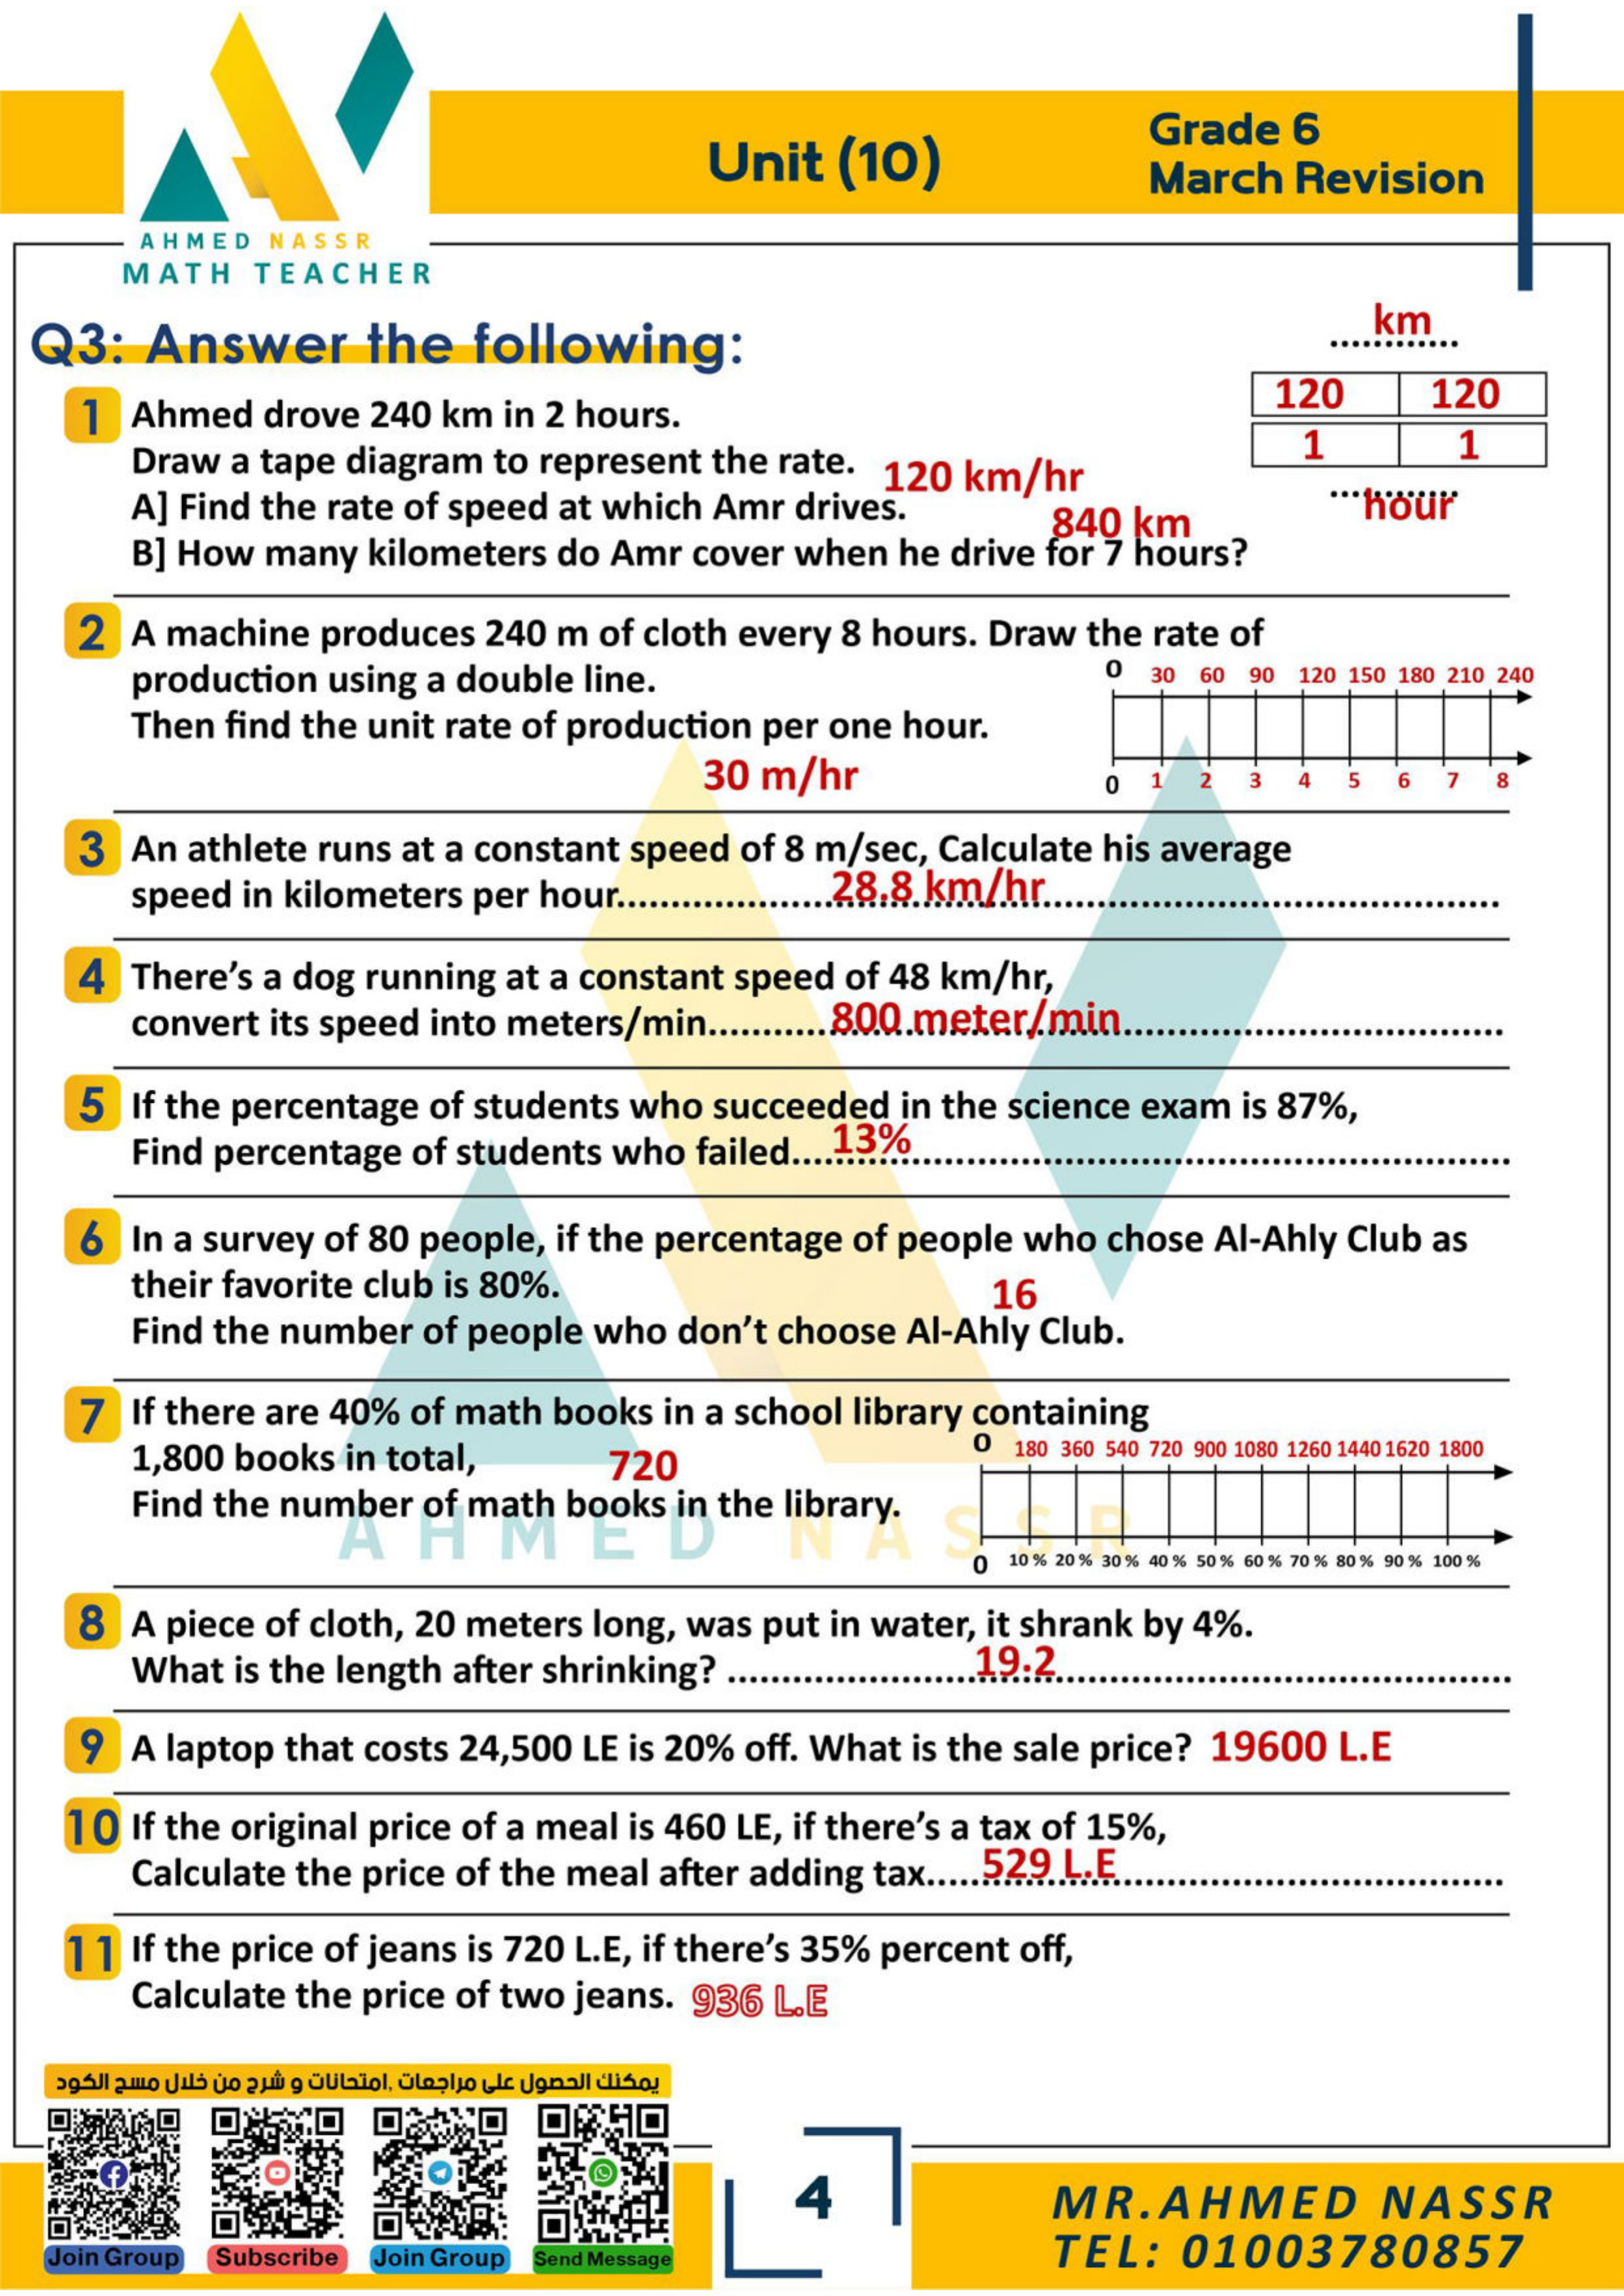 Unit (10)
Grade 6
March Revision
AHMED NASSR
MATH TEACHER
Q3: Answer the following:
km
............
120 120
1 1
............
hour
1 Ahmed drove 240 km in 2 hours.
Draw a tape diagram to represent the rate.
A] Find the rate of speed at which Amr drives. 120 km/hr
B] How many kilometers do Amr cover when he drive for 7 hours? 840 km
2 A machine produces 240 m of cloth every 8 hours. Draw the rate of
production using a double line.
Then find the unit rate of production per one hour.
30 m/hr
0 30 60 90 120 150 180 210 240
0 1 2 3 4 5 6 7 8
3 An athlete runs at a constant speed of 8 m/sec, Calculate his average
speed in kilometers per hour....................28.8 km/hr....................
4 There's a dog running at a constant speed of 48 km/hr,
convert its speed into meters/min...........800 meter/min....................
5 If the percentage of students who succeeded in the science exam is 87%,
Find percentage of students who failed....13%....................
6 In a survey of 80 people, if the percentage of people who chose Al-Ahly Club as
their favorite club is 80%.
16
Find the number of people who don't choose Al-Ahly Club.
7 If there are 40% of math books in a school library containing
1,800 books in total,
720
Find the number of math books in the library.
0 180 360 540 720 900 1080 1260 1440 1620 1800
0 10 % 20 % 30 % 40 % 50 % 60 % 70 % 80 % 90 % 100 %
AHMED NASSR
8 A piece of cloth, 20 meters long, was put in water, it shrank by 4%.
What is the length after shrinking? ....................19.2....................
9 A laptop that costs 24,500 LE is 20% off. What is the sale price? 19600 L.E
10 If the original price of a meal is 460 LE, if there's a tax of 15%,
Calculate the price of the meal after adding tax.....529 L.E....................
11 If the price of jeans is 720 L.E, if there's 35% percent off,
Calculate the price of two jeans. 936 L.E
يمكنك الحصول على مراجعات ,امتحانات و شرح من خلال مسح الكود
Join Group Subscribe Join Group Send Message
4
MR.AHMED NASSR
TEL: 01003780857